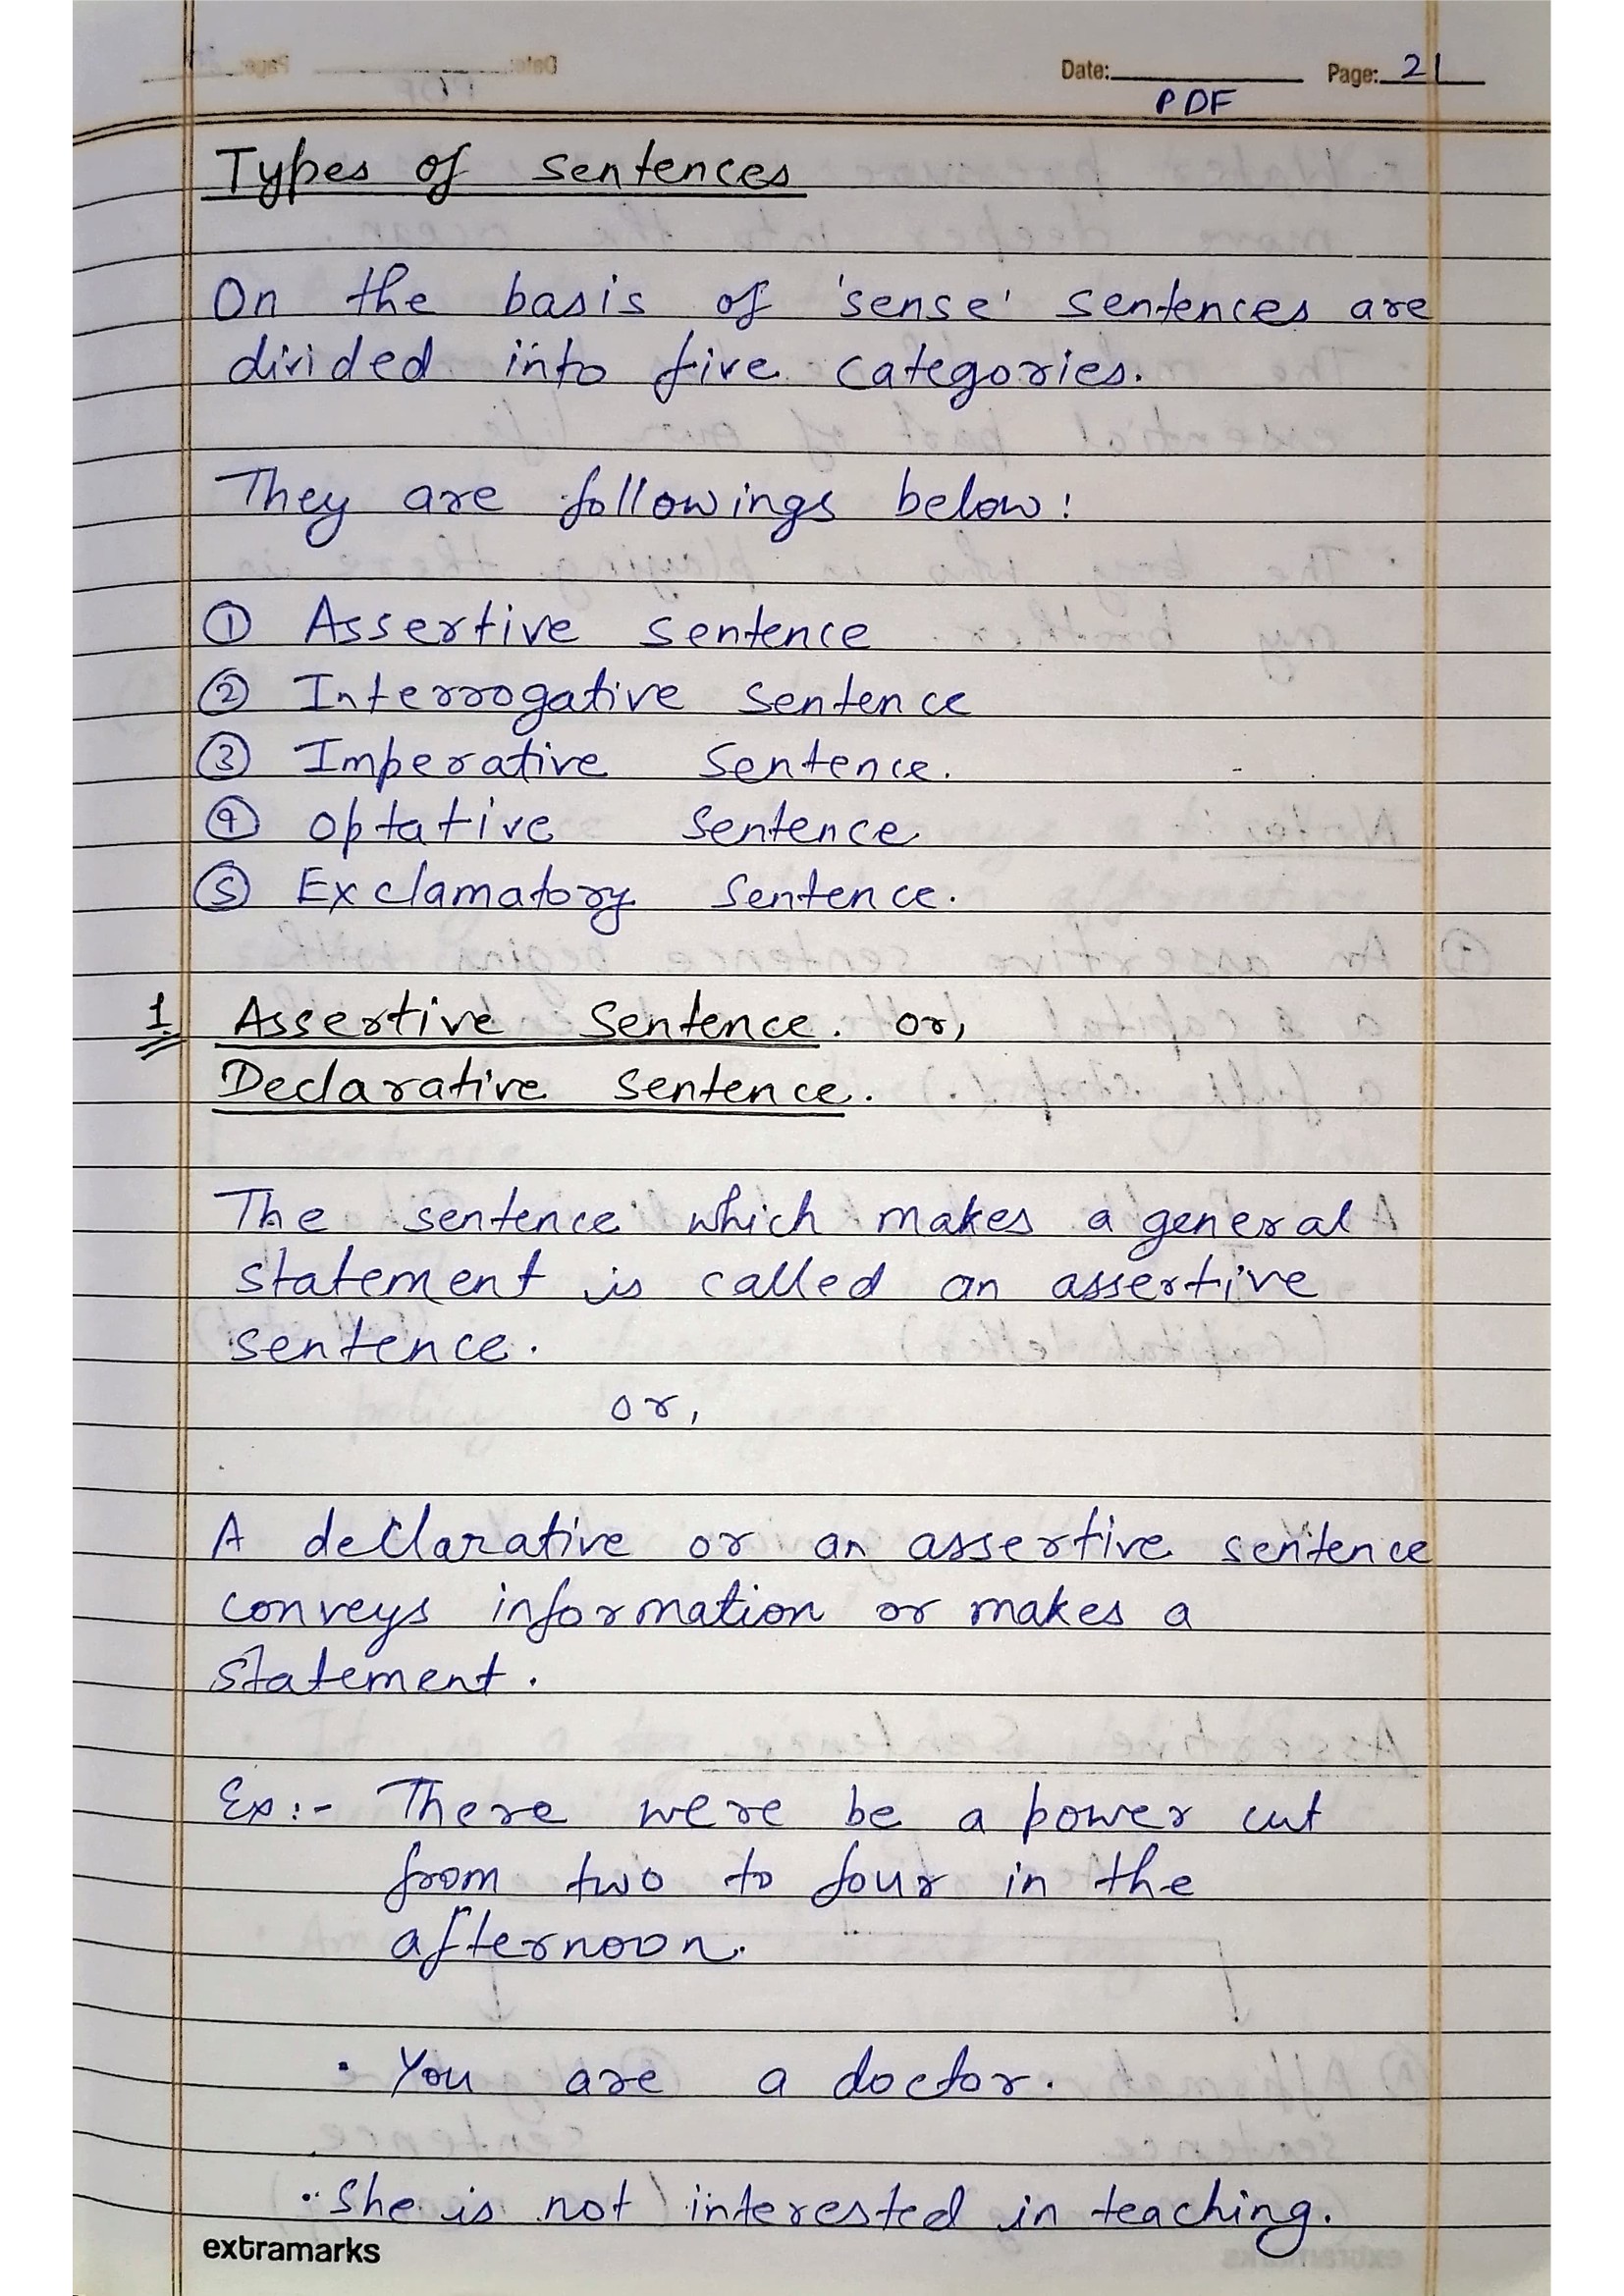 Date: Page: 21
PDF
Types of sentences
On the basis of 'sense' sentences are
divided into five categories.
They are followings below:
① Assertive sentence
② Interrogative sentence
③ Imperative sentence.
④ Optative sentence
⑤ Exclamatory sentence.
1. Assertive Sentence. or,
Declarative sentence.
The sentence which makes a general
statement is called an assertive
sentence.
or,
A declarative or an assertive sentence
conveys information or makes a
statement.
Ex:- There were be a power cut
from two to four in the
afternoon.
• You are a doctor.
• She is not interested in teaching.
extramarks